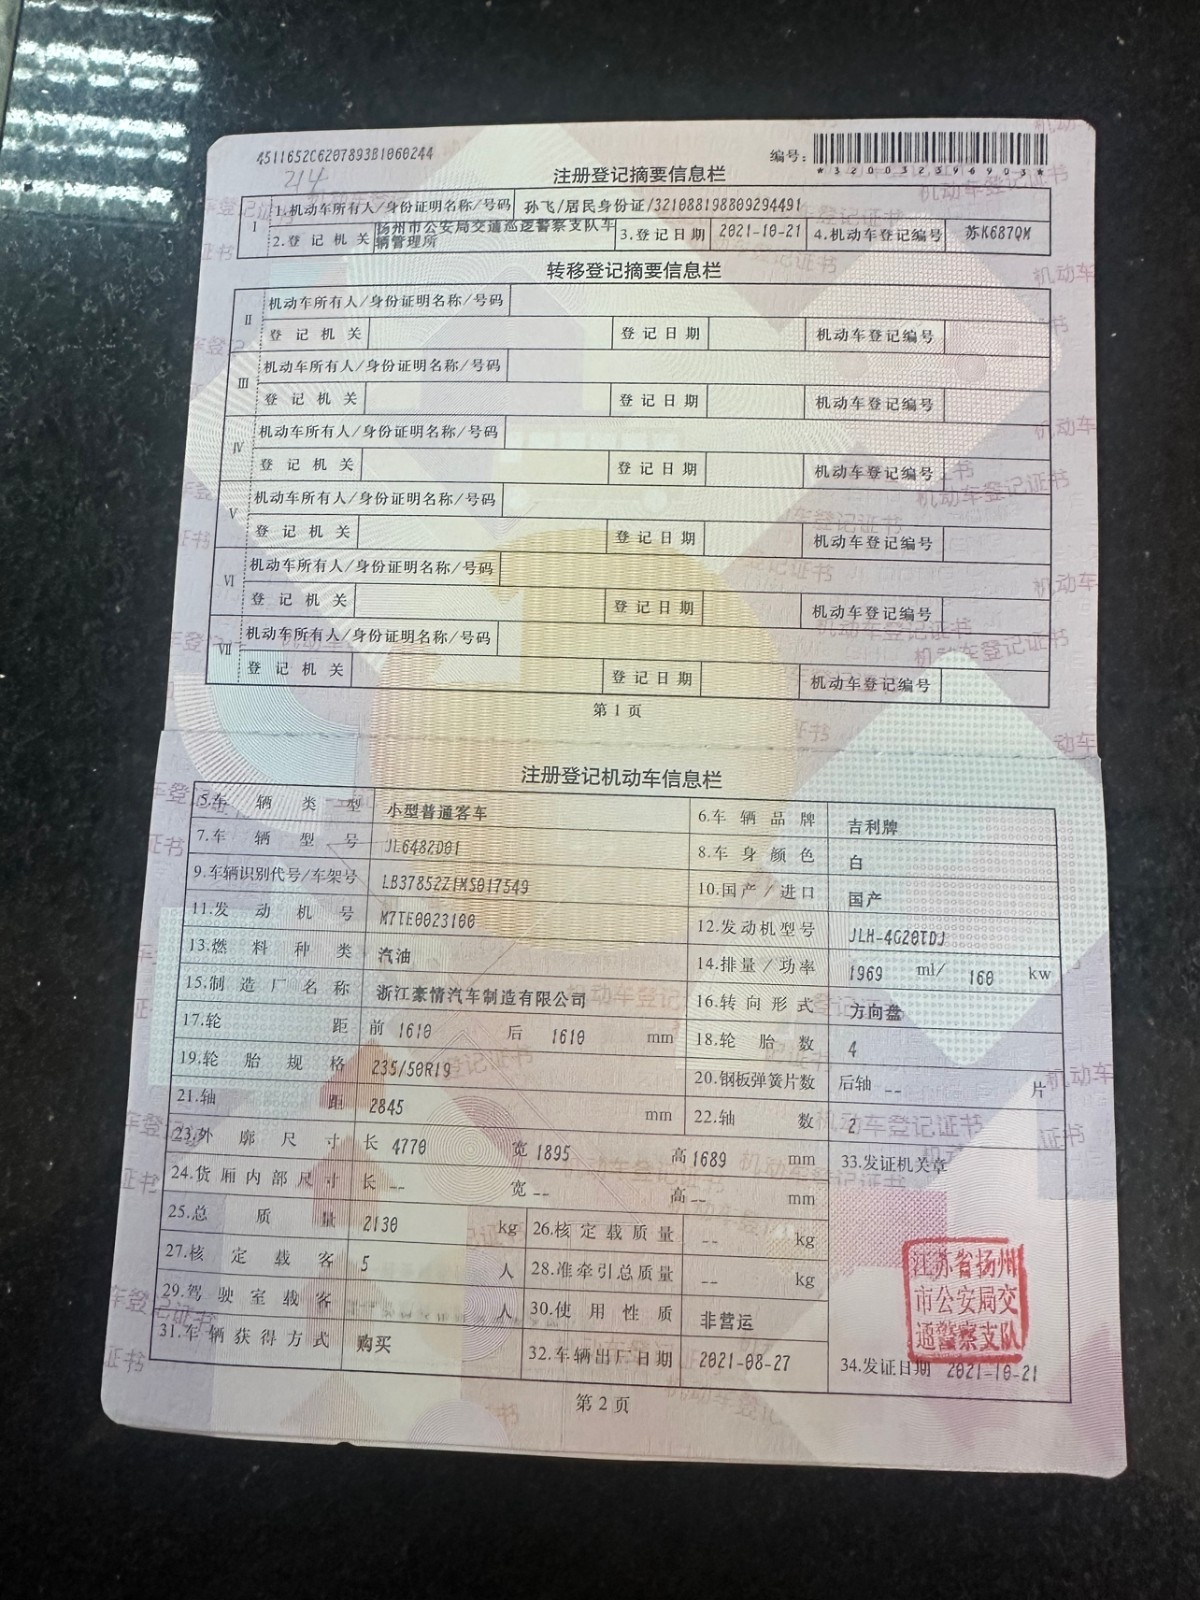 4511652C6207893B1060244
编号:
*320032396903*
214
注册登记摘要信息栏
I 1.机动车所有人/身份证明名称/号码 孙飞/居民身份证/321088198809294491
2.登记机关 扬州市公安局交通巡逻警察支队车辆管理所 3.登记日期 2021-10-21 4.机动车登记编号 苏K687QM
转移登记摘要信息栏
II 机动车所有人/身份证明名称/号码
登记机关 登记日期 机动车登记编号
III 机动车所有人/身份证明名称/号码
登记机关 登记日期 机动车登记编号
IV 机动车所有人/身份证明名称/号码
登记机关 登记日期 机动车登记编号
V 机动车所有人/身份证明名称/号码
登记机关 登记日期 机动车登记编号
VI 机动车所有人/身份证明名称/号码
登记机关 登记日期 机动车登记编号
VII 机动车所有人/身份证明名称/号码
登记机关 登记日期 机动车登记编号
第1页
注册登记机动车信息栏
5.车辆类型 小型普通客车 6.车辆品牌 吉利牌
7.车辆型号 JL6482D01 8.车身颜色 白
9.车辆识别代号/车架号 LB37852Z1MS017549 10.国产/进口 国产
11.发动机号 M7TE0023100 12.发动机型号 JLH-4G20TDJ
13.燃料种类 汽油 14.排量/功率 1969 ml/ 160 kw
15.制造厂名称 浙江豪情汽车制造有限公司 16.转向形式 方向盘
17.轮距 前 1610 后 1610 mm 18.轮胎数 4
19.轮胎规格 235/50R19 20.钢板弹簧片数 后轴 -- 片
21.轴距 2845 mm 22.轴数 2
23.外廓尺寸 长 4770 宽 1895 高 1689 mm 33.发证机关章
24.货厢内部尺寸 长 -- 宽 -- 高 -- mm
25.总质量 2130 kg 26.核定载质量 -- kg
27.核定载客 5 人 28.准牵引总质量 -- kg
29.驾驶室载客 人 30.使用性质 非营运
31.车辆获得方式 购买 32.车辆出厂日期 2021-08-27 34.发证日期 2021-10-21
江苏省扬州
市公安局交
通警察支队
第2页